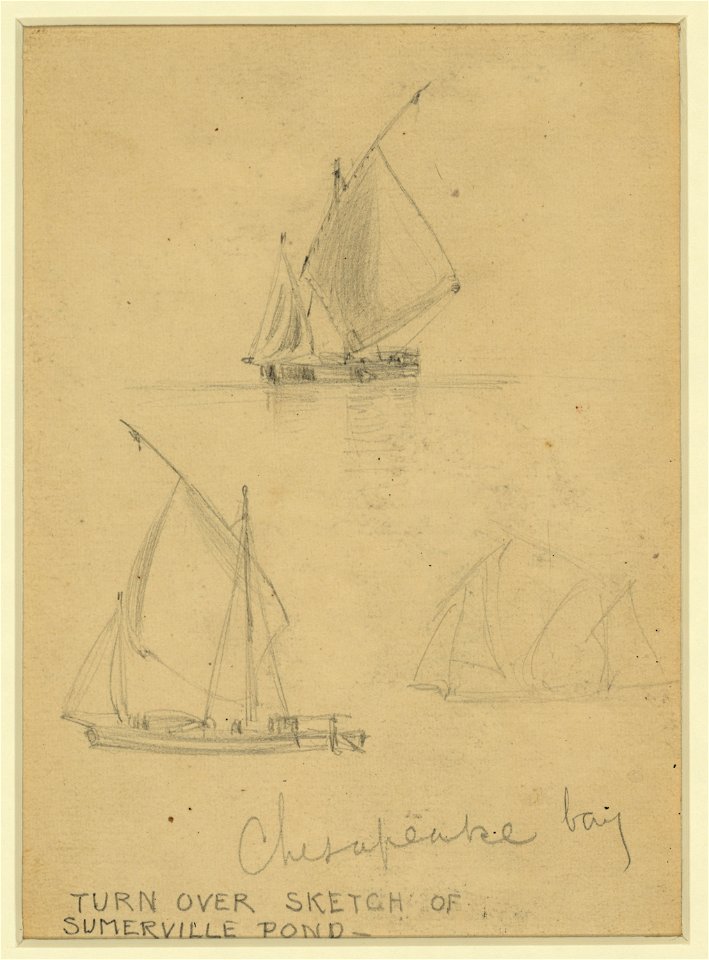 Chesapeake bay
TURN OVER SKETCH OF
SUMERVILLE POND-